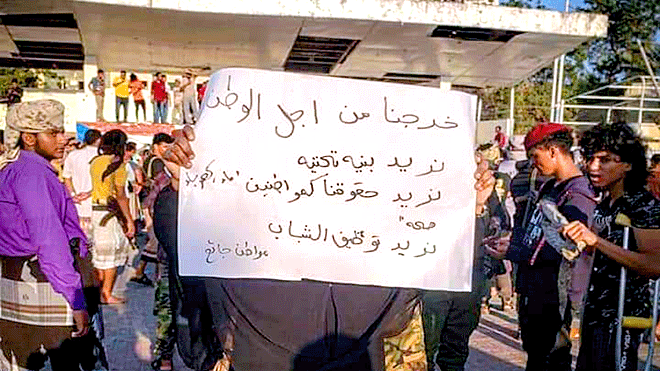 خرجنا من اجل الوطن
نريد بنيه تحتيه
نريد حقوقنا كمواطنين "ماء، كهرباء
صحه"
نريد توظيف الشباب
مواطن جائع